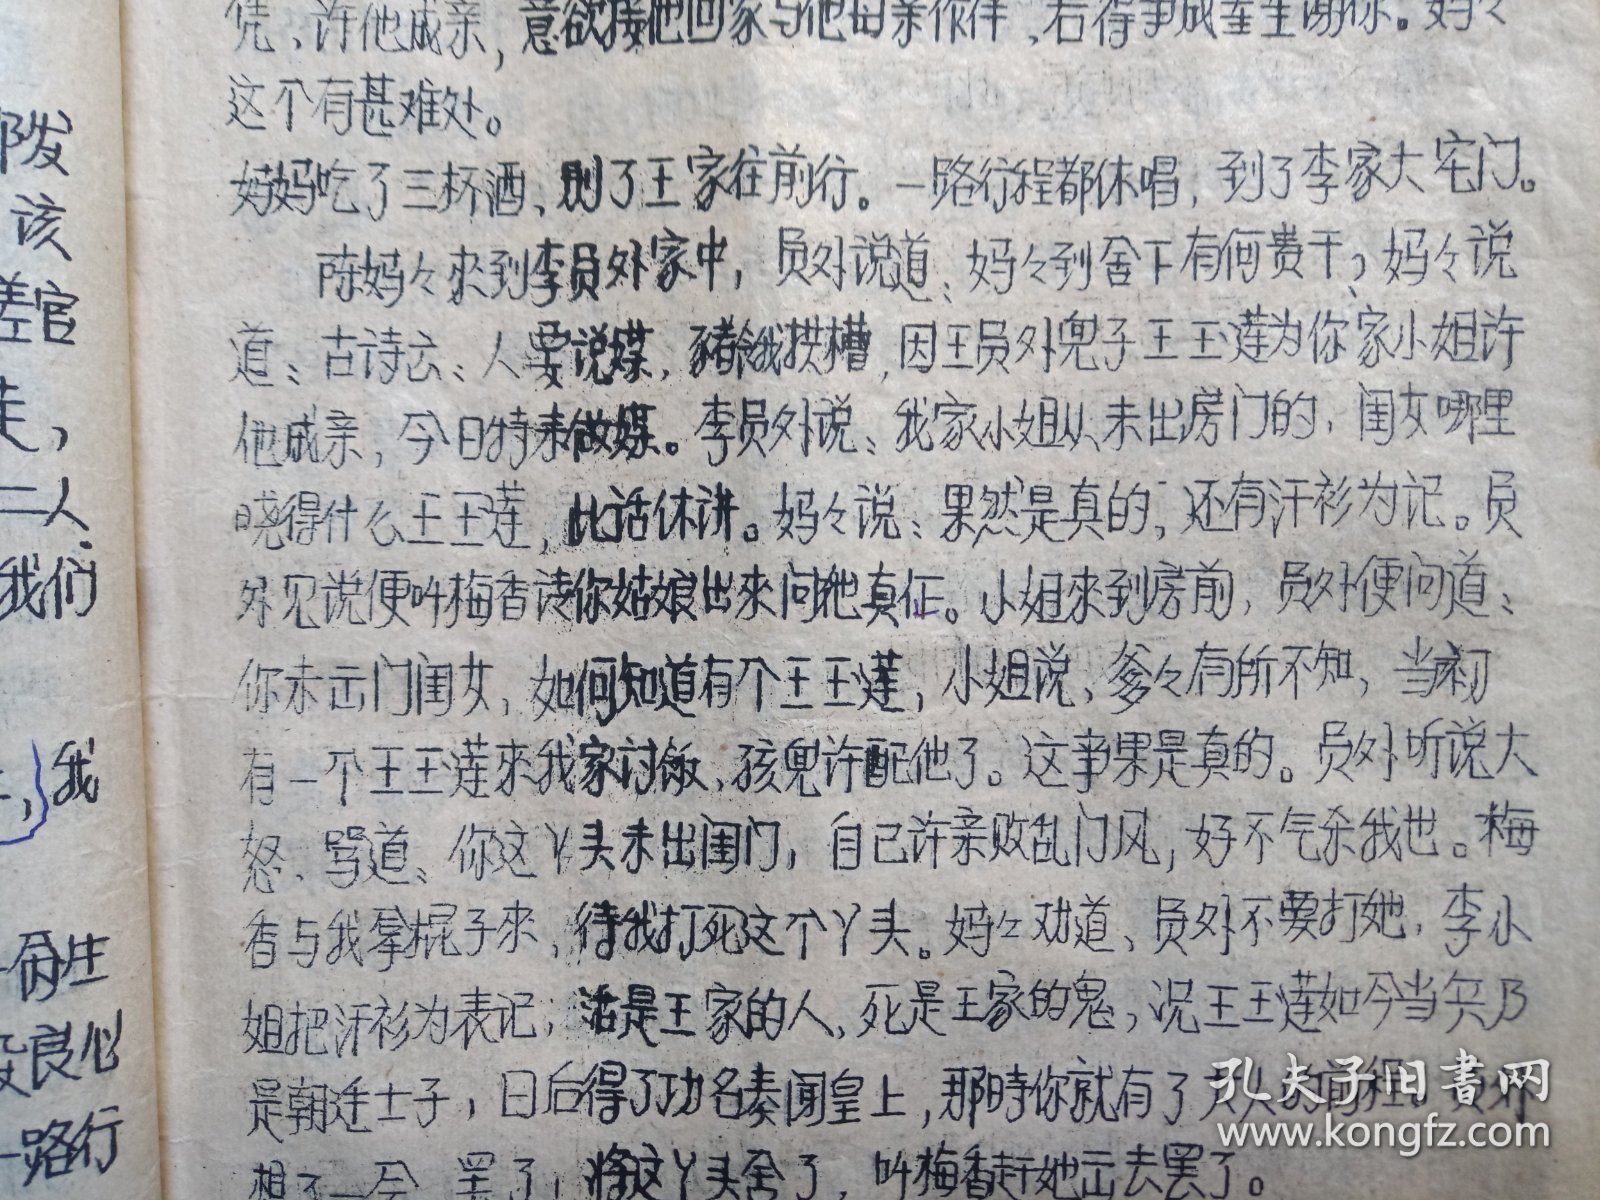 凭、许他成亲,意欲接他回家与他母亲作伴、若得事成重重谢你。妈々
这个有甚难处。
妈妈吃了三杯酒、别了王家往前行。一路行程都休唱,到了李家大宅门。
陈妈々來到李员外家中,员外说道、妈々到舍下有何贵干?妈々说
道、古诗云、人要说媒,豬餓拱槽,因王员外児子王玉莲为你家小姐许
他成亲,今日特来做媒。李员外说、我家小姐从未出房门的,闺女哪里
晓得什么王玉莲,此话休讲。妈々说、果然是真的,还有汗衫为记。员
外见说便叫梅香请你姑娘出來问他真伪。小姐來到房前,员外便问道、
你未出门闺女,如何知道有个王玉莲,小姐说、爹々有所不知,当初
有一个王玉莲來我家讨饭,孩児许配他了。这事果是真的。员外听说大
怒、骂道、你这丫头未出闺门,自己许亲败乱门风,好不气杀我也。梅
香与我拿棍子來,待我打死这个丫头。妈々劝道、员外不要打她,李小
姐把汗衫为表记,活是王家的人、死是王家的鬼,况王玉莲如今当兵乃
是朝廷士子,日后得了功名奏闻皇上,那時你就有了
想了一会,罢了,将这丫头舍了,叫梅香赶她出去罢了。
那
发
该
差官
走,
二人
我们
我
良心
一路行
孔夫子旧書网
www.kongfz.com